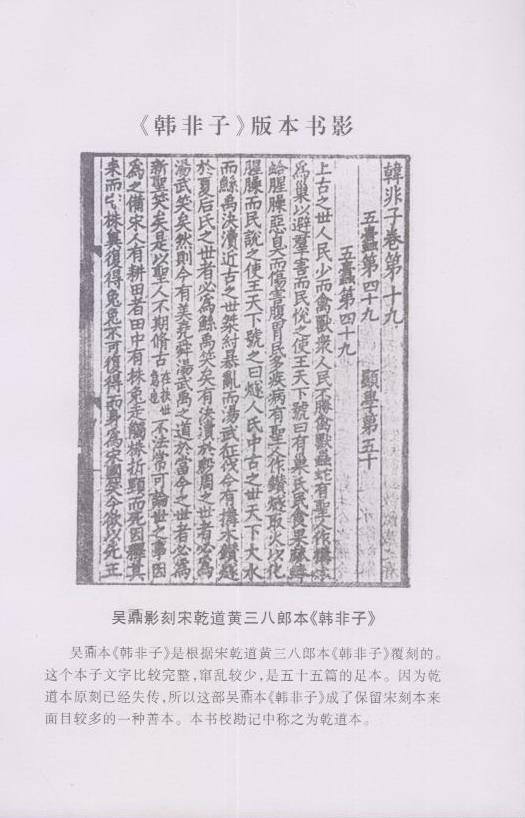 《韩非子》版本书影
韓非子卷第十九
五蠹第四十九 顯學第五十
五蠹第四十九
上古之世人民少而禽獸衆人民不勝禽獸蟲蛇有聖人作構木
爲巢以避羣害而民悦之使王天下號曰有巢氏民食果蓏蜯
蛤腥臊惡臭而傷害腹胃民多疾病有聖人作鑽燧取火以化
腥臊而民說之使王天下號之曰燧人氏中古之世天下大水
而鯀禹決瀆近古之世桀紂暴亂而湯武征伐今有搆木鑽燧
於夏后氏之世者必爲鯀禹笑矣有決瀆於殷周之世者必爲
湯武笑矣然則今有美堯舜湯武禹之道於當今之世者必爲
新聖笑矣是以聖人不期脩古不法常可論世之事因
爲之備宋人有耕田者田中有株兔走觸株折頸而死因釋其
耒而守株冀復得兔兔不可復得而身爲宋國笑今欲以先王
吴鼒影刻宋乾道黄三八郎本《韩非子》
吴鼒本《韩非子》是根据宋乾道黄三八郎本《韩非子》覆刻的。
这个本子文字比较完整，窜乱较少，是五十五篇的足本。因为乾
道本原刻已经失传，所以这部吴鼒本《韩非子》成了保留宋刻本来
面目较多的一种善本。本书校勘记中称之为乾道本。